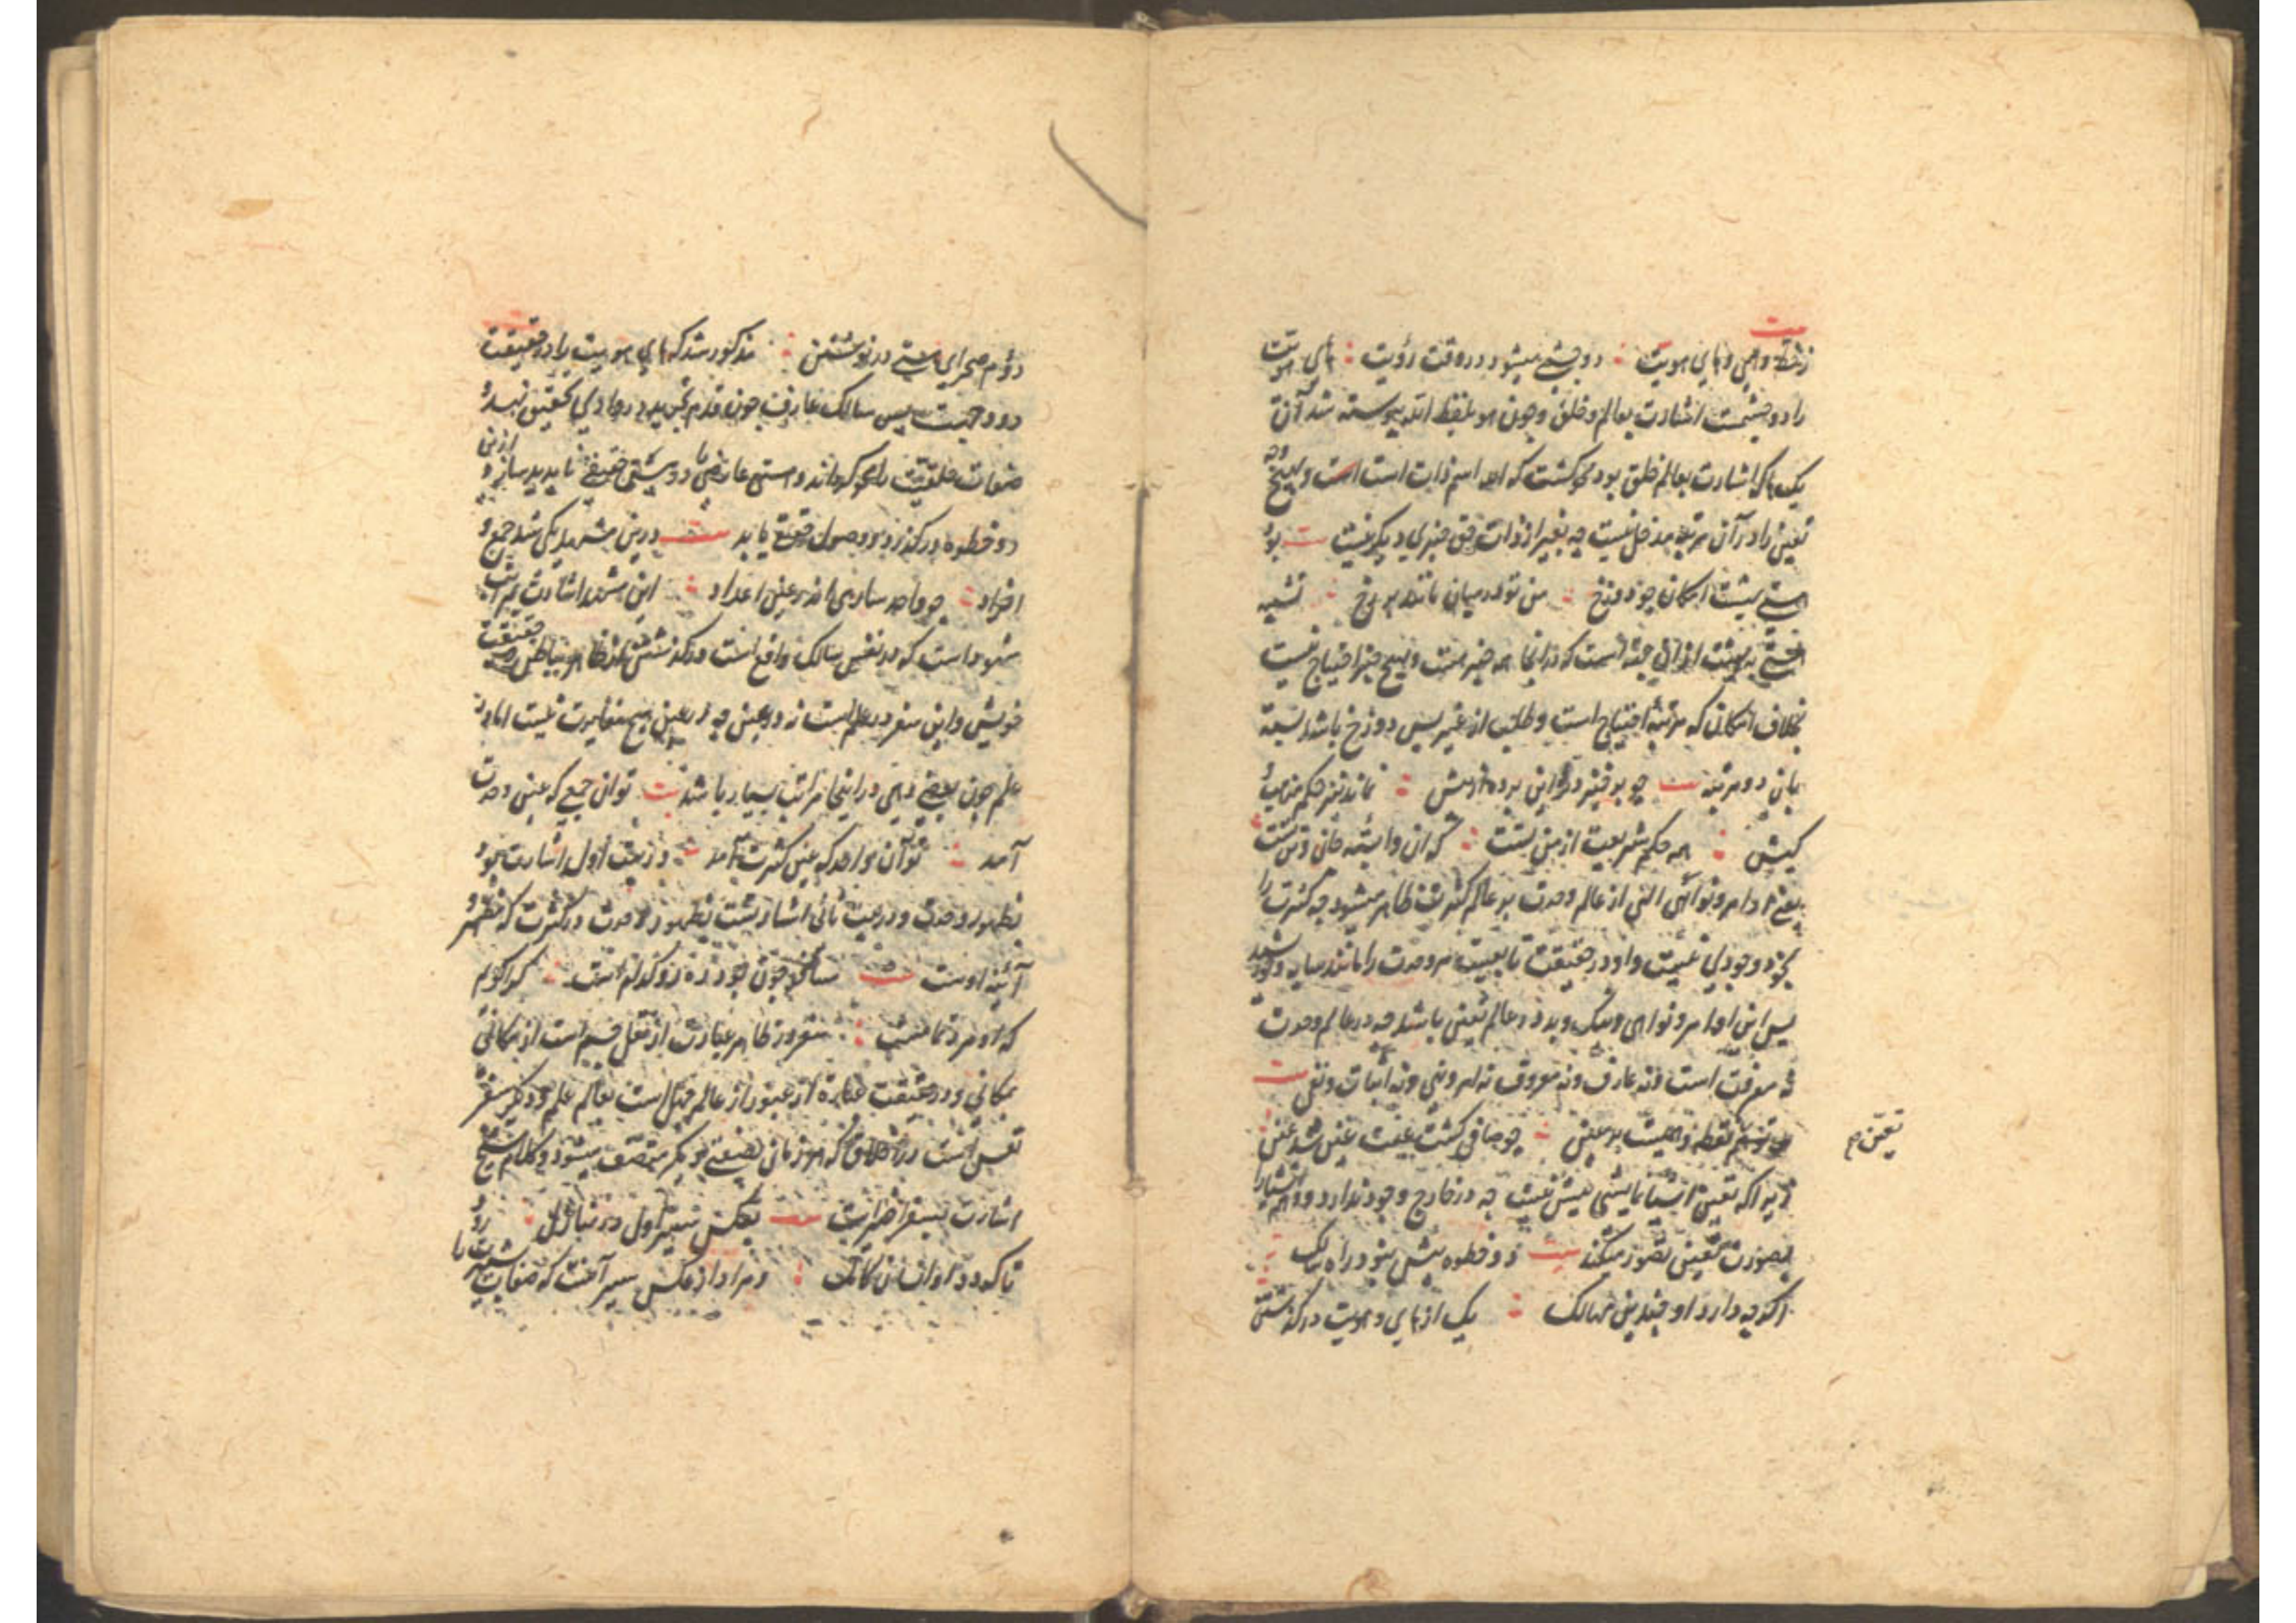 بیت
زخط وهمی وهای هویت دو چشمی میشود در وقت رؤیت های هویت
را دو چشمست اشارت بعالم وخلق وچون هو بلفظ الله پیوسته شد آن
یک ها که اشارت بعالم خلق بود محو کشت که الله اسم ذات است است وهیچ وجه
تعین را در آن مرتبه مدخل نیست چه بغیر از ذات حق چیزی دیکر نیست بیت بود
هستی بهشت امکان چو دوزخ من تو در میان مانند برزخ تشبیه
هستی به بهشت از آن جهة است که در انجا همه چیز هست وهیچ چیز احتیاج نیست
بخلاف امکان که مرتبه احتیاج است وطلب از غیر پس دوزخ باشد نسبة
بان دو مرتبه بیت چو برخیزد ترا این پرده از پیش نماند نیز حکم مذهب و
کیش همه حکم شریعت از من تست که آن وابسته جان وتن تست
یعنی اوامر ونواهی الهی از عالم وحدت بر عالم کثرت ظاهر میشود چه کثرت را
بخود وجودی نیست واو در حقیقت تابعیت مر وحدت را مانند سایه ونور
پس این اوامر ونواهی ونیک وبد در عالم تعین باشد چه در عالم وحدت
نه معرفت است ونه عارف ونه معروف نه امر ونهی ونه اثبات ونفی بیت
تعین م
نقطه وهمیست بر عین چو صافی کشت غیبت عین شد عین
زیرا که تعین اشیا نمایشی بیش نیست چه در خارج وجود ندارد و وهم اشیا را
بصورت تعین تصور میکند بیت دو خطوه بیش نبود راه سالک
اکرچه دارد او چندین مهالک یک از های هویت درکذشتن
دوم صحرای هستی درنوشتن مذکور شد که های هویت را در حقیقت
دو وجهست پس سالک عارف چون قدم تجرید در وادی تحقیق نهد و
صفات خلقیت را محو کرداند وهستی عارضی را در هستی حقیقی ناپدید سازد و ازین
دو خطوه درکذرد و وصول حقیقی یابد بیت درین مشهد یکی شد جمع و
افراد چو واحد ساری اندر عین اعداد این مشهد اشارت بمرتبه
شهود است که در نفس سالک واقع است ودرکذشتن از ظاهر بباطن حقیقت
خویش واین سفر در علم است نه در عین چه در عین هیچ مغایرت نیست اما در
علم چون بعضی وهمی در اینجا مراتب بسیار باشد بیت تو آن جمعی که عین وحدت
آمد تو آن واحد که عین کثرت آمد در بیت اول اشارت بود
بظهور وحدت ودر بیت ثانی اشارتست بظهور وحدت در کثرت که مظهر و
آئینه اوست بیت مسافر چون بود ره رو کدامست کرا کویم
که او مرد تمامست سفر در ظاهر عبارت از نقل جسم است از مکانی
بمکانی ودر حقیقت عبارة از عبور از عالم جهل است بعالم علم ودیکر سفر
نفس است در اخلاق که هر زمانی بصفتی دیکر متصف میشود وکلام شیخ
اشارت بسفر اخیر است بیت بعکس سیر اول در منازل رود
تا کردد او انسان کامل ومراد از عکس سیر آنست که صفات بشریت را